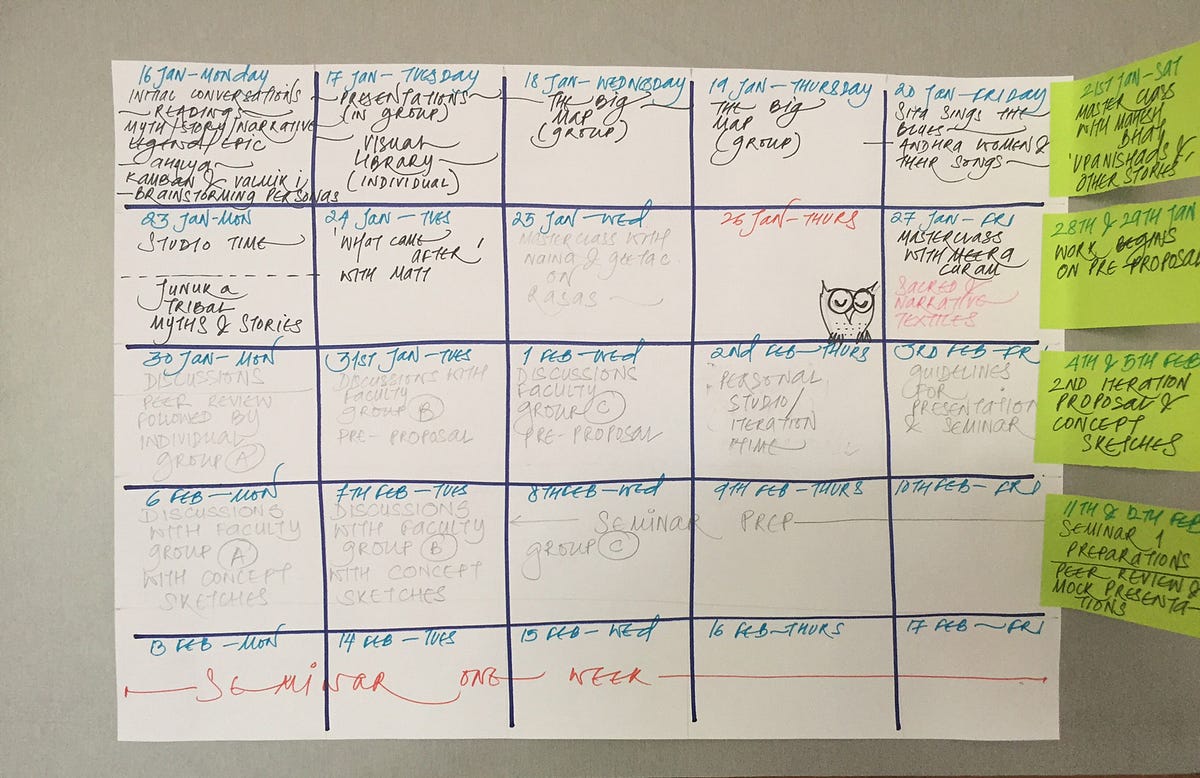 16 JAN-MONDAY
INITIAL CONVERSATIONS
READINGS
MYTH/STORY/NARRATIVE
LEGEND/EPIC
KAMBAN & VALMIKI
-BRAINSTORMING PERSONAS
17 JAN- TUESDAY
PRESENTATIONS
(IN GROUP)
VISUAL
LIBRARY
(INDIVIDUAL)
18 JAN-WEDNESDAY
THE BIG
MAP
(GROUP)
19 JAN-THURSDAY
THE BIG
MAP
(GROUP)
20 JAN-FRIDAY
SITA SINGS THE
BLUES
ANDHRA WOMEN &
THEIR SONGS
21ST JAN-SAT
MASTER CLASS
WITH
BHAT
'UPANISHADS &
OTHER STORIES'
23 JAN-MON
STUDIO TIME
JUNUKA
TRIBAL
MYTHS & STORIES
24 JAN-TUES
'WHAT CAME
AFTER'
WITH MATT
25 JAN-WED
MASTERCLASS WITH
NAINA & GEETA C.
ON
RASAS
26 JAN-THURS
27 JAN-FRI
MASTERCLASS
WITH MEERA
CURAM
SACRED &
NARRATIVE
TEXTILES
28TH & 29TH JAN
WORK BEGINS
ON PRE-PROPOSAL
30 JAN-MON
DISCUSSIONS
PEER REVIEW
FOLLOWED BY
INDIVIDUAL
GROUP A
31ST JAN-TUES
DISCUSSIONS WITH
FACULTY
GROUP B
PRE-PROPOSAL
1 FEB-WED
DISCUSSIONS
FACULTY
GROUP C
PRE-PROPOSAL
2nd FEB-THURS
PERSONAL
STUDIO/
ITERATION
TIME
3RD FEB-FRI
GUIDELINES
FOR
PRESENTATION
& SEMINAR
4TH & 5TH FEB
2ND ITERATION
PROPOSAL &
CONCEPT
SKETCHES
6 FEB-MON
DISCUSSIONS
WITH FACULTY
GROUP A
WITH CONCEPT
SKETCHES
7TH FEB-TUES
DISCUSSIONS
WITH FACULTY
GROUP B
WITH CONCEPT
SKETCHES
8TH FEB-WED
SEMINAR PREP
GROUP C
9TH FEB-THURS
10TH FEB-FRI
11TH & 12TH FEB
SEMINAR 1
PREPARATIONS
PEER REVIEW &
MOCK PRESENTA-
TIONS
13 FEB-MON
14 FEB-TUES
15 FEB-WED
16 FEB-THURS
17 FEB-FRI
SEMINAR ONE WEEK